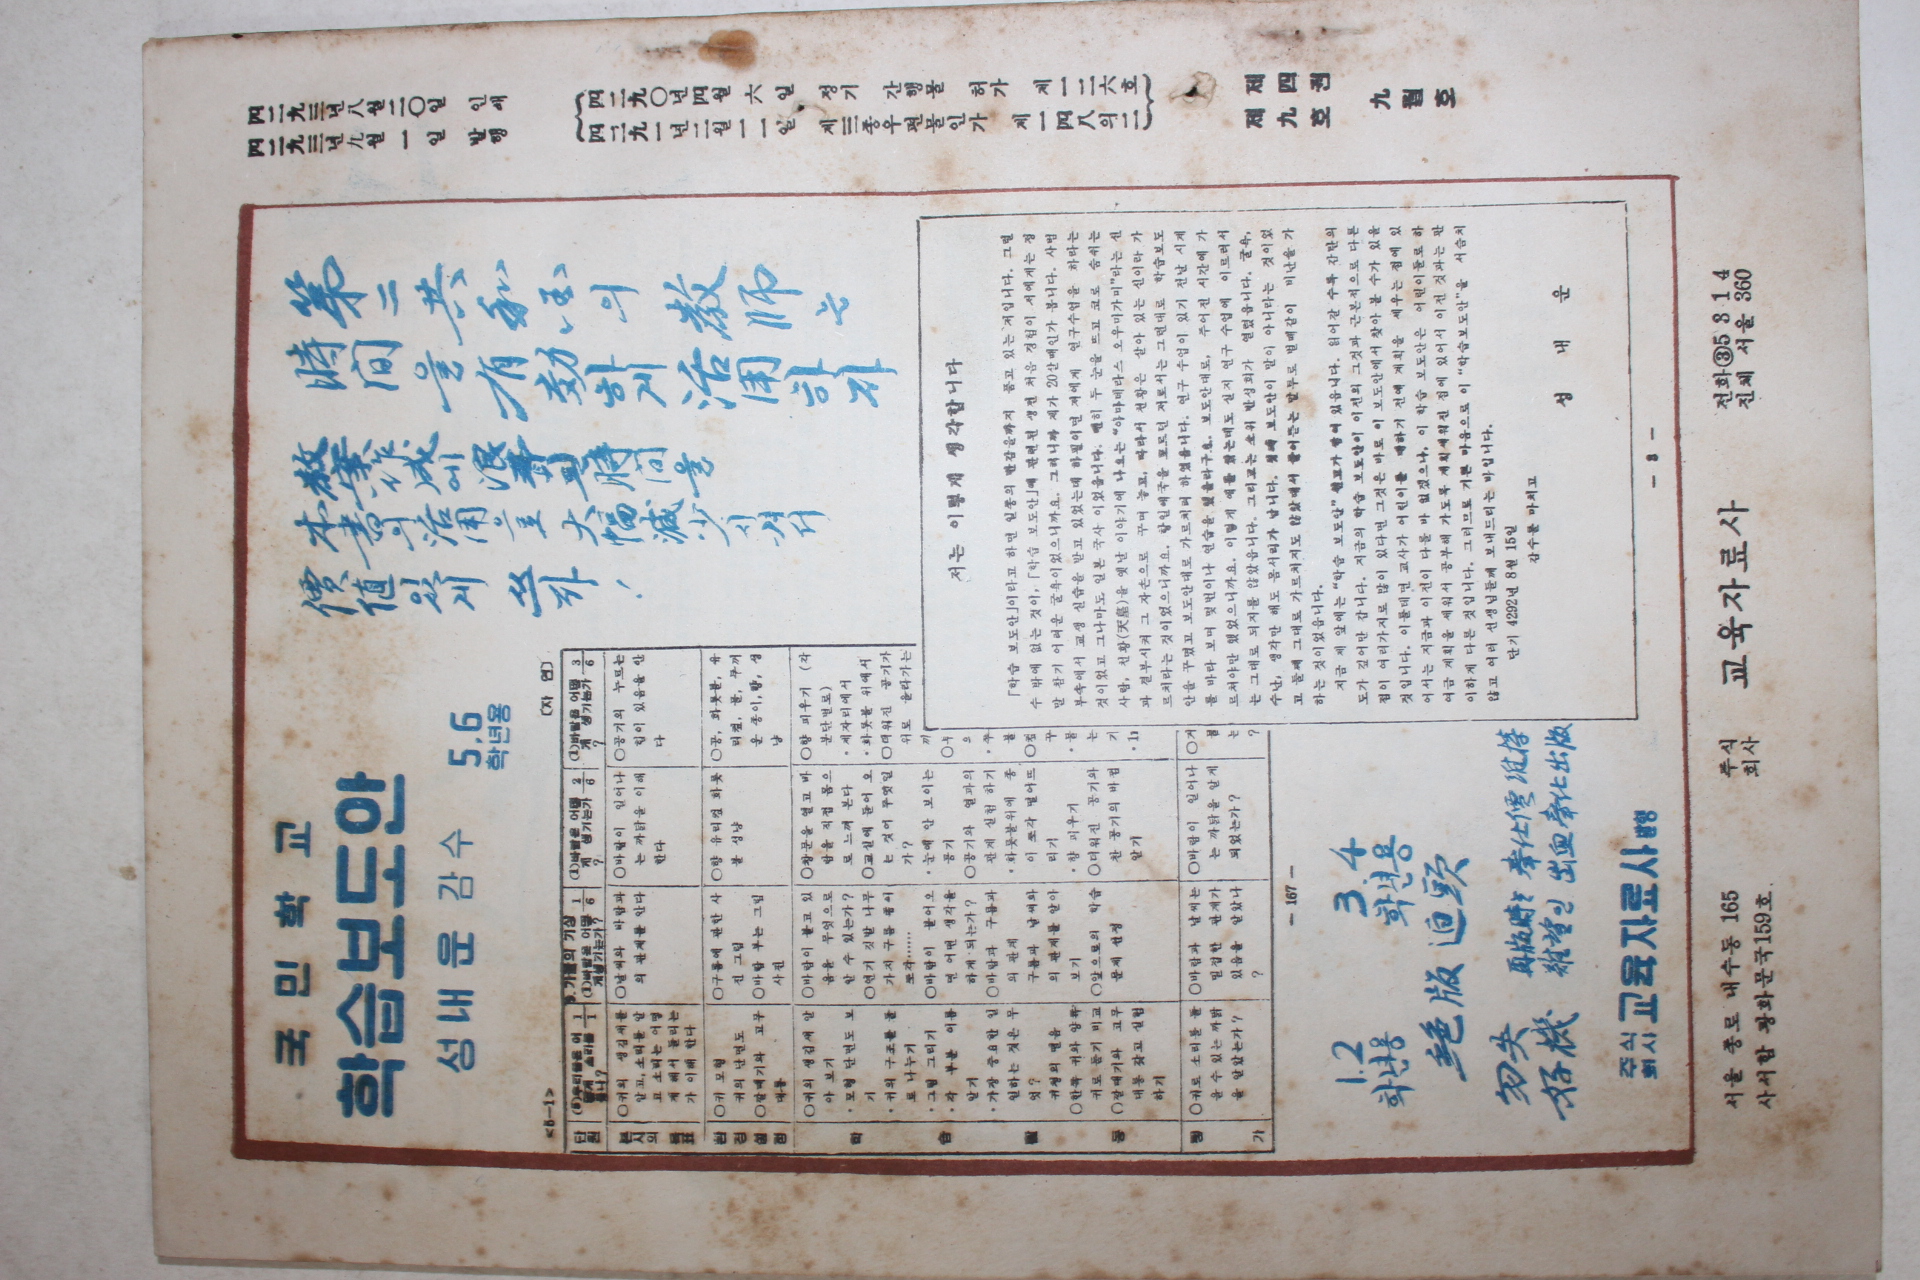 국민학교
학습보도안
성내운 감수
5.6
학년용
第二共和国의 敎師는
時間을 有効하게 活用하자
敎案作成에 浪費되는 時間을
本書의 活用으로 大幅減少시켜서
價値있게 쓰자!
<5-1>
(자 연)
단원
(8)우리들은 어떻게 소리를 듣나? 1/1
9. 가을의 기상
(1)바람은 어떻게 생기는가? 1/6
(1)바람은 어떻게 생기는가? 2/6
(1)바람은 어떻게 생기는가? 3/6
본시의 목표
○귀의 생김새를
알고, 소리를 알
고 소리는 어떻
게 해서 들리는
가 이해 한다
○날씨와 바람과
의 관계를 안다
○바람이 일어나
는 까닭을 이해
한다
○공기의 누르는
힘이 있음을 안
다
환경설정
○귀 모형
귀의 단면도
○팔매기와 고무
대통
○구름에 관한 사
진 그림
○바람 부는 그림
사진
○향 유리컵 화롯
불 성냥
○공, 화롯불, 유
리컵, 물, 두꺼
운 종이, 향, 성
냥
학습활동
○귀의 생김새 알
아 보기
·모형 단면도 보
기
·귀의 구조를 몇으
로 나누기
·그림 그리기
·각 부분 이름
알기
·가장 중요한 일
일하는 것은 무
엇?
귀청의 떨음
○한쪽 귀와 양쪽
귀로 듣기 비교
○팔매기와 고무
대통 갖고 실험
하기
○바람이 불고 있
음을 무엇으로
알 수 있는가?
○연기 깃발 나무
가지 구름 종이
쪼각……
○바람이 불어오
면 어떤 생각을
하게 되는가?
○바람과 구름과
의 관계
구름과 날씨와
의 관계를 알아
보기
○앞으로의 학습
문제 선정
○창문을 열고 바
람을 직접 몸으
로 느껴 본다
○교실에 들어 오
는 것이 무엇인
가?
·눈에 안 보이는
공기
○공기와 열과의
관계 실험 하기
·화롯불위에 종
이 쪼각 떨어뜨
리기
·향 피우기
○더워진 공기와
찬 공기의 바뀜
알기
○향 피우기 (각
분단별로)
·제자리에서
·화롯불 위에서
○더워진 공기가
위로 올라가는
평가
○귀로 소리를 들
을 수 있는 까닭
을 알았는가?
○바람과 날씨는
밀접한 관계가
있음을 알았나
?
○바람이 일어나
는 까닭을 알게
되었는가?
— 167 —
저는 이렇게 생각합니다
「학습 보도안」이라고 하면 일종의 반감을까지 품고 있는 저입니다. 그럴
수 밖에 없는 것이, 「학습 보도안」에 관련된 생전 처음 경험이 저에게는 정
말 참기 어려운 굴욕이었으니까요. 그러니까 제가 20살때인가 봅니다. 사범
부속에서 교생 실습을 받고 있었는데 하필이면 저에게 연구수업을 하라는
것이었고 그나마도 일본 국사 이었읍니다. 뻔히 두 눈을 뜨고 코로 숨쉬는
사람, 천황(天皇)을 옛날 이야기에 나오는 “아마데라스 오우미가미”라는 신
과 결부시켜 그 자손으로 꾸며 놓고, 따라서 천황은 살아 있는 신이라 가
르치라는 것이었으니까요. 항일애국을 모르던 저로서는 그런대로 학습보도
안을 꾸몄고 보도안대로 가르치려 하였읍니다. 연구 수업이 있기 전날 시계
를 바라 보며 몇번이나 연습을 했을라구요. 보도안대로, 주어진 시간에 가
르쳐야만 했었으니까요. 이렇게 애를 썼는데도 실지 연구 수업에 이르러서
는 그대로 되지를 않았읍니다. 그리고는 소위 반성회가 열렸읍니다. 굴욕,
수난, 생각만 해도 몸서리가 납니다. 첫째 보도안이 말이 아니라는 것이었
고 둘째 그대로 가르치지도 않았대서 물어뜯는 말투로 벌떼같이 비난을 가
하는 것이었읍니다.
지금 제 앞에는 “학습 보도안” 원고가 쌓여 있읍니다. 읽어갈 수록 감탄의
도가 깊어만 갑니다. 지금의 학습 보도안이 이전의 그것과 근본적으로 다른
점이 여러가지로 많이 있다면 그것은 바로 이 보도안에서 찾아 볼 수가 있을
것입니다. 이를테면 교사가 어린이를 대하기 전에 계획을 세우는 점에 있
어서는 지금과 이전이 다를 바 없겠으나, 이 학습 보도안은 어린이들로 하
여금 계획을 세워서 공부해 가도록 계획세워진 점에 있어서 이전 것과는 판
이하게 다른 것입니다. 그러므로 기쁜 마음으로 이 “학습보도안”을 서슴치
않고 여러 선생님들께 보내드리는 바입니다.
단기 4292년 8월 15일
감수를 마치고
성 내 운
— 3 —
1.2
학년용
3.4
학년용
絶版迫頭
勿失
好機
再版時는 奉仕價維持
難望인 出血奉仕出版
주식
회사 교육자료사 발행
서울 종로 내수동 165
사서함 광화문국159호
주식
회사 교육자료사
전화③5314
진체 서울 360
四二九三년八월二〇일 인쇄
四二九三년九월一일 발행
(四二九〇년四월六일 정기 간행물 허가 제一二六호)
(四二九一년二월一一일 제三종우편물인가 제一四八의二)
제四권
제九호
九월호